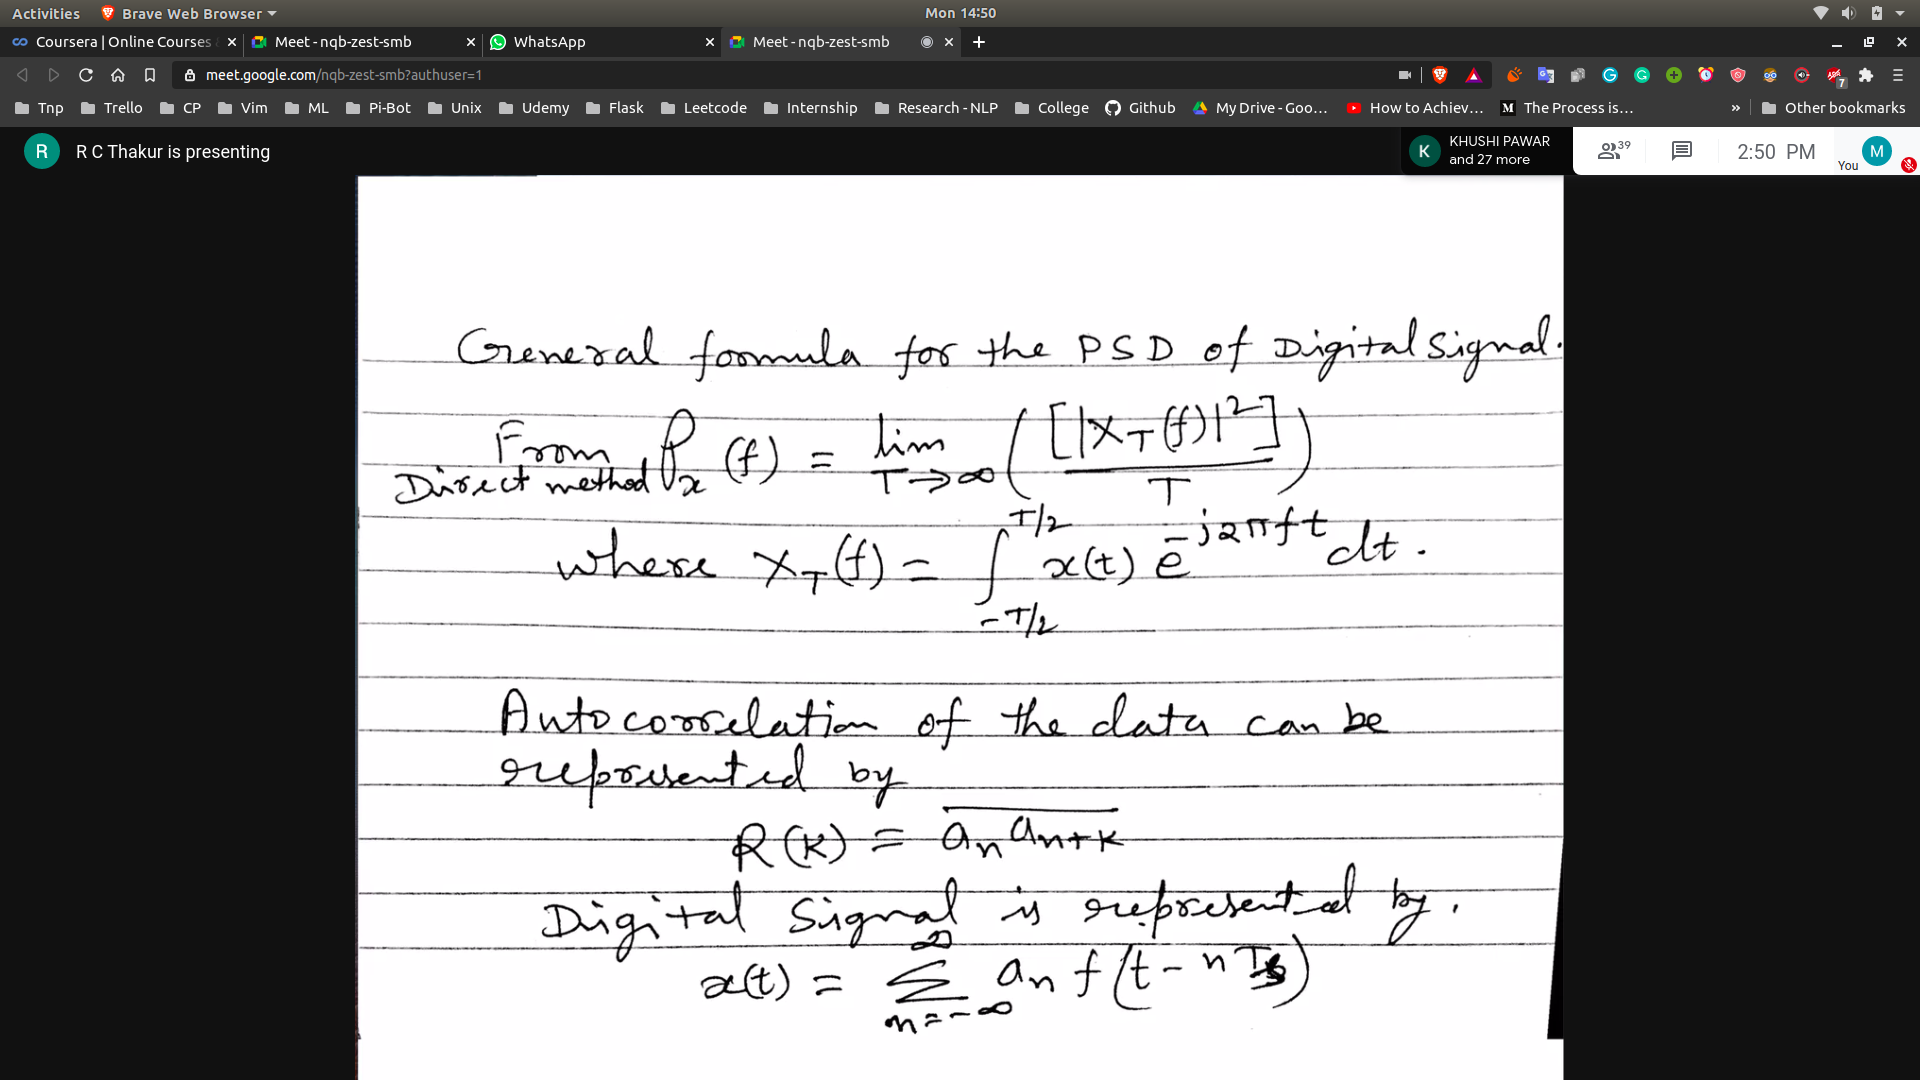 Activities Brave Web Browser Mon 14:50
Coursera | Online Courses Meet - nqb-zest-smb WhatsApp Meet - nqb-zest-smb
meet.google.com/nqb-zest-smb?authuser=1
Tnp Trello CP Vim ML Pi-Bot Unix Udemy Flask Leetcode Internship Research - NLP College Github My Drive - Goo... How to Achiev... The Process is... » Other bookmarks
R R C Thakur is presenting K KHUSHI PAWAR and 27 more 39 2:50 PM You M
General formula for the PSD of Digital Signal.
From Direct method P_x(f) = lim T→∞ ( [|X_T(f)|²] / T )
where X_T(f) = ∫_{-T/2}^{T/2} x(t) e^{-j2πft} dt.
Autocorrelation of the data can be
represented by
R(k) = \overline{a_n a_{n+k}}
Digital Signal is represented by.
x(t) = Σ_{n=-∞}^{∞} a_n f(t - nTs)